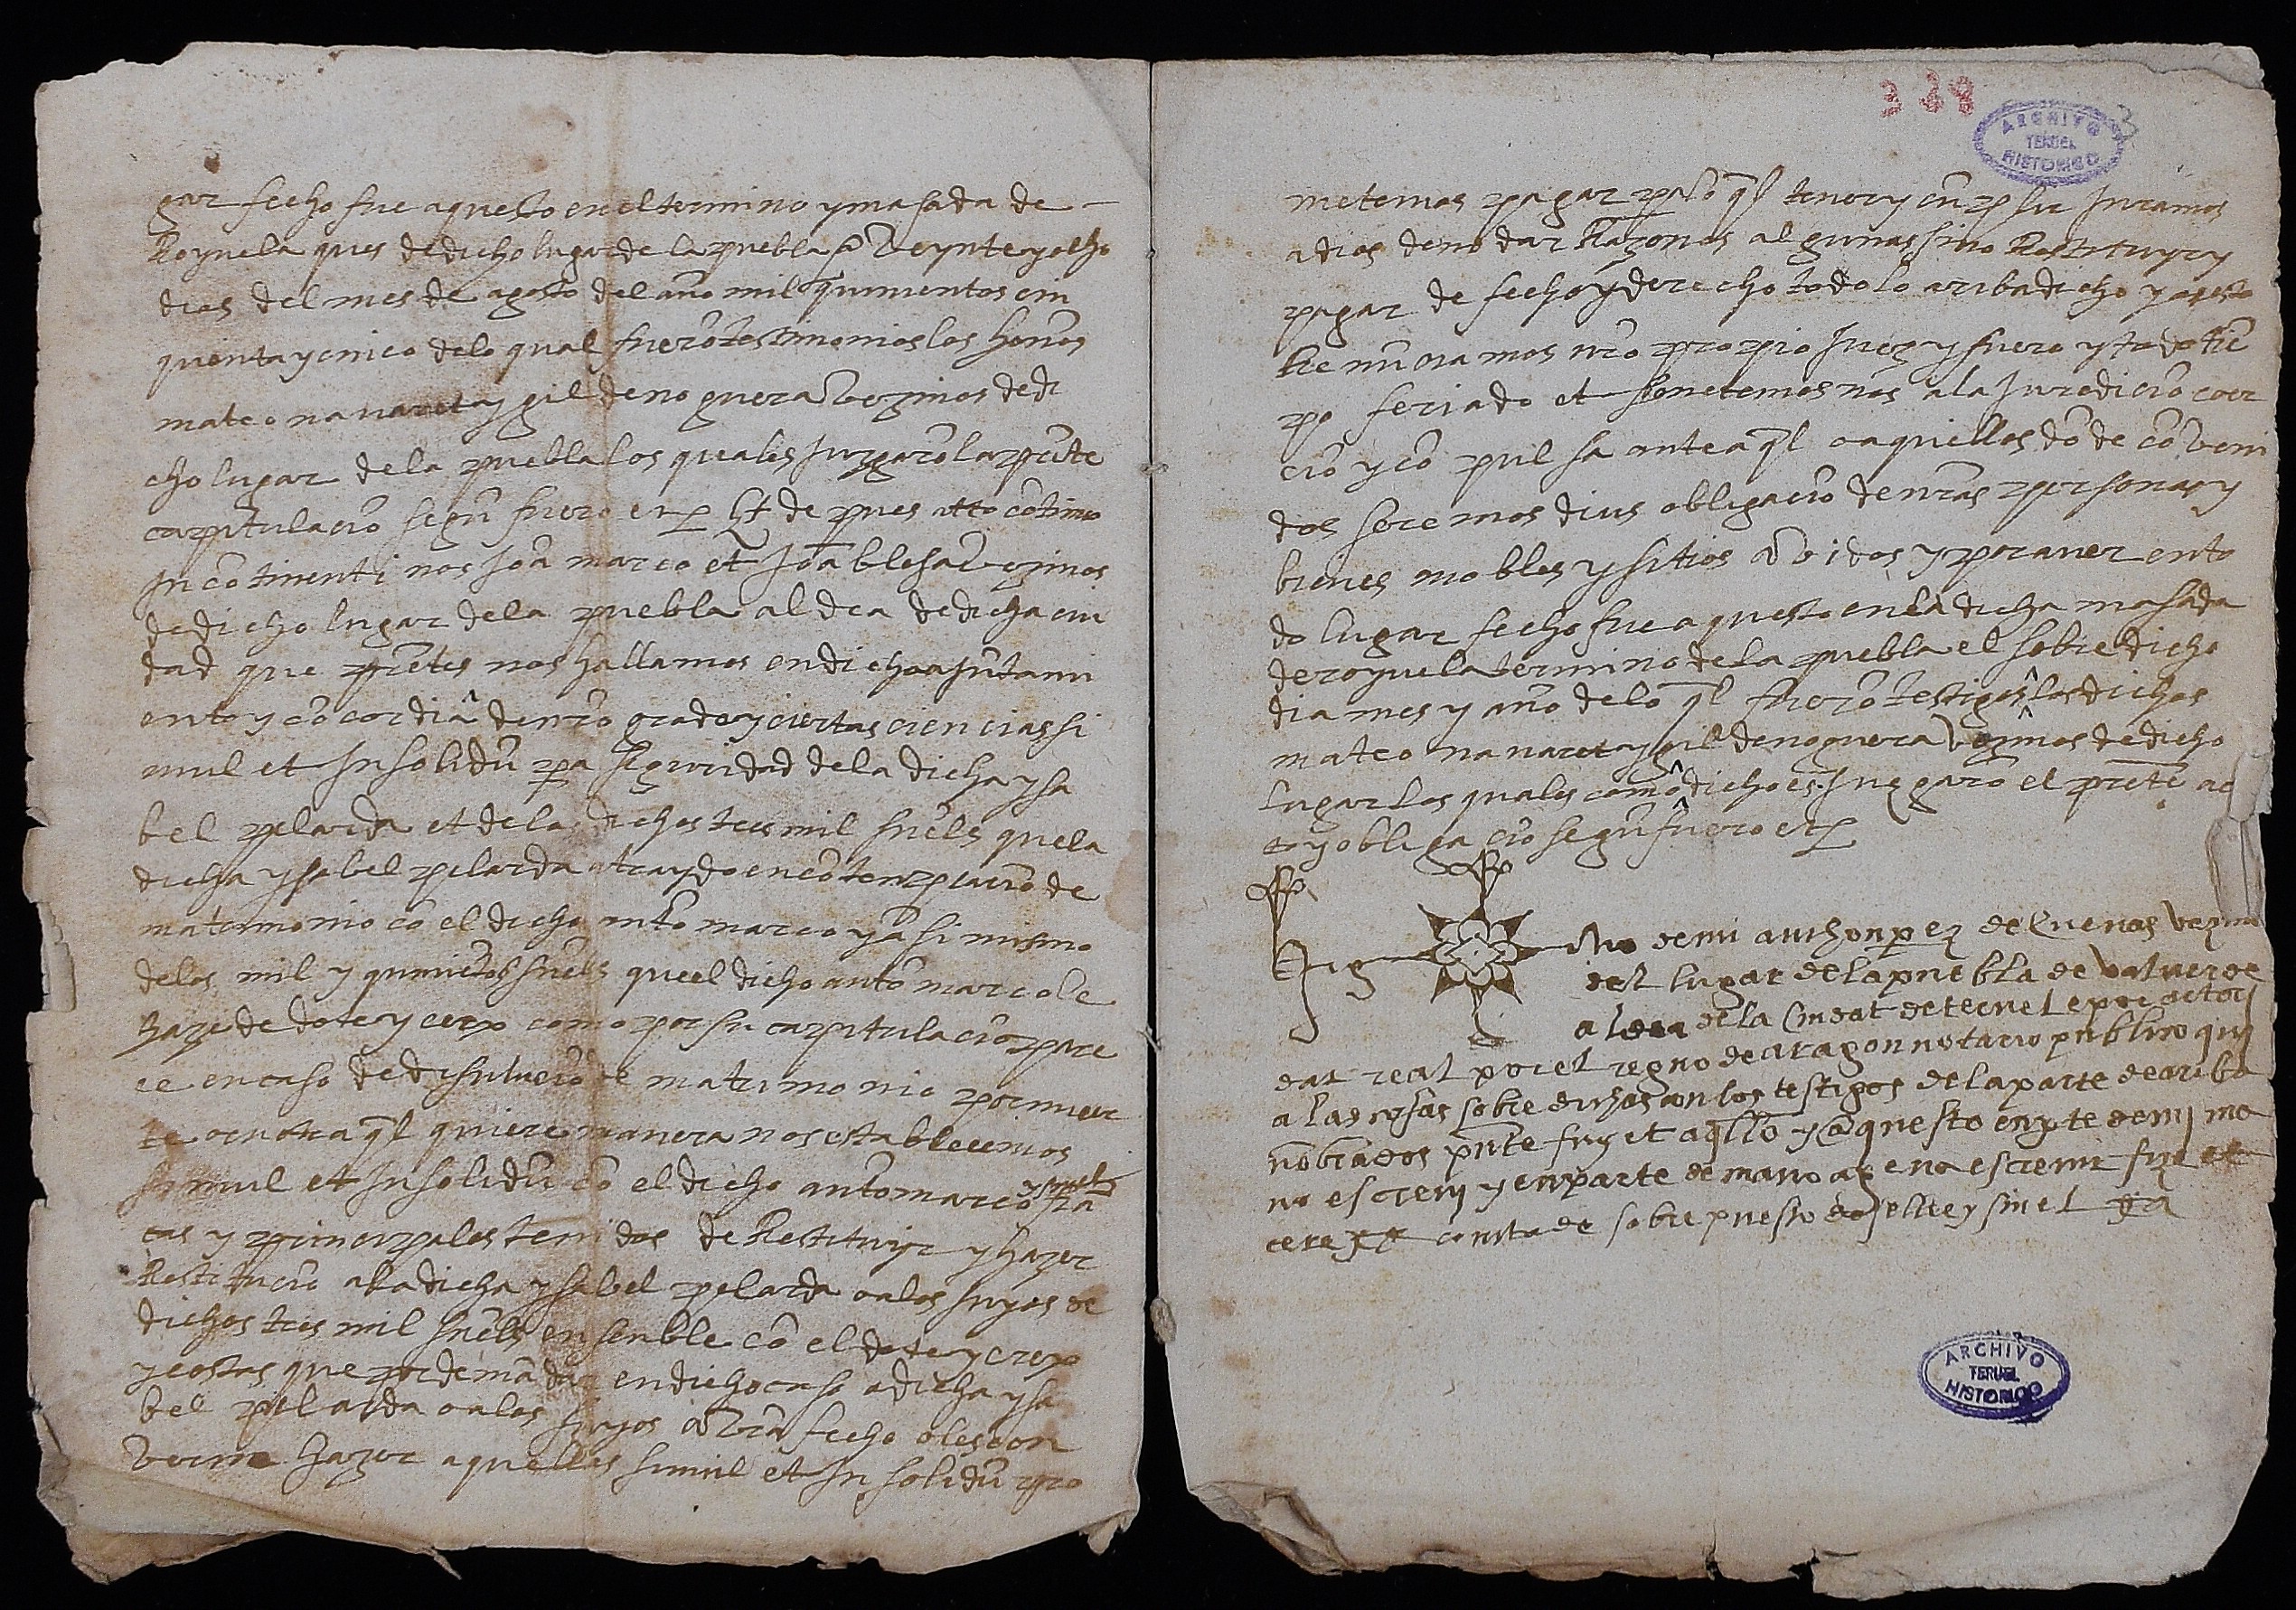 gar fecho fue aquesto en el termino y masada de
Royuela ques de dicho lugar de la puebla a veynte y ocho
dias del mes de agosto del año mil quinientos cin
quenta y cinco delo qual fuerõ testimonios los honos
mateo navarreta y gil de noguera vezinos de di
cho lugar de la puebla los quales Juzgarõ la pñte
capitulaciõ segũ fuero et de pues atto cõtinuo
In cõtinenti nos Joã marco et Joã blesa vezinos
de dicho lugar de la puebla aldea de dicha ciu
dad que pñtes nos hallamos en dicho ajũtami
ento y cõcordia de nrõ grado y ciertas ciencias si
mul et In solidũ pa seguridad de la dicha ysa
bel pelarda et de los dichos tres mil suels que la
dicha ysabel pelarda a traydo en cõtenplaciõ de
matrimonio cõ el dicho antõ marco y a si mismo
delos mil y quiniẽtos suels que el dicho antõ marco le
haze de dote y crex como por su capitulaciõ pare
ce en caso de disuluciõ de matrimonio por muer
te o en otra ql quiere manera nos establecemos
simul et In solidũ cõ el dicho antõ marco fiã
ças y principales tenidos de Restituyr y hazer
Restituciõ a la dicha ysabel pelarda o a los suyos de
dichos tres mil suels ensenble cõ el dote y crex
y costas que por demãdar en dicho caso a dicha ysa
bel pelarda o a los suyos avrã fecho o les con
verna hazer aquellas simul et In solidũ pro
339
3
ARCHIVO
TERUEL
HISTORICO
metemos pagar pa lo ql tener y cũplir Juramos
a dios de no dar Razones algunas sino Restituyr y
pagar de fecho y derecho todo lo aribadicho y a esto
Renũciamos nrõ propio Juez y fuero y todo tiẽ
po feriado et sometemos nos a la Juredicio coer
ciõ y cõpulsa ante aql o aquellos dõde cõveni
dos seremos dius obligaciõ de nras personas y
bienes mobles y sitios avidos y por aver en to
do lugar fecho fue aquesto en la dicha masada
de royuela termino de la puebla el sobre dicho
dia mes y año delo ql fuerõ testigos los dichos
mateo navarreta y gil de noguera vezinos de dicho
lugar los quales como dicho es Juzgarõ el pñte ac
to y obligaciõ segũ fuero
Sig no de mi anthon perez de Cuevas vezino
del lugar de la puebla de valverde
aldea de la Ciudat de teruel e por actori
dat real por el regno de aragon notario publico qui
a las cosas sobre dichas con los testigos de la parte de ariba
nõbrados pñte fuy et aqllo y aquesto en pte de mj ma
no escreuj y en parte de mano agena escreuir fize et
cere constade sobre puesto
ARCHIVO
TERUEL
HISTORICO